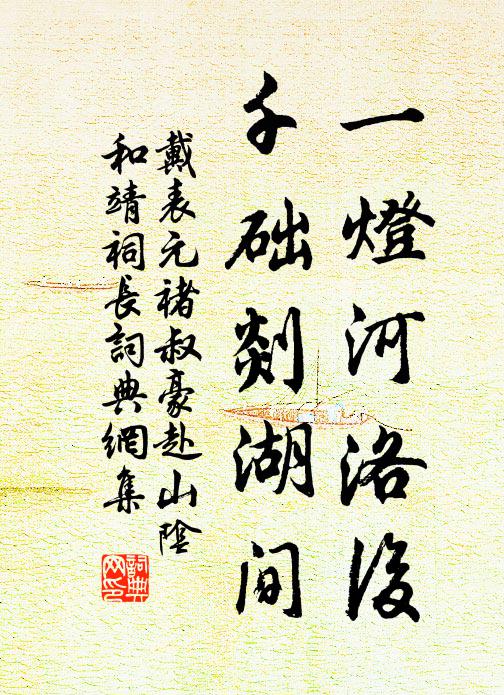 一燈河洛後
千础剡湖间
戴表元褚叔豪赴山陰
和靖祠長詞典網集
詞典
网印